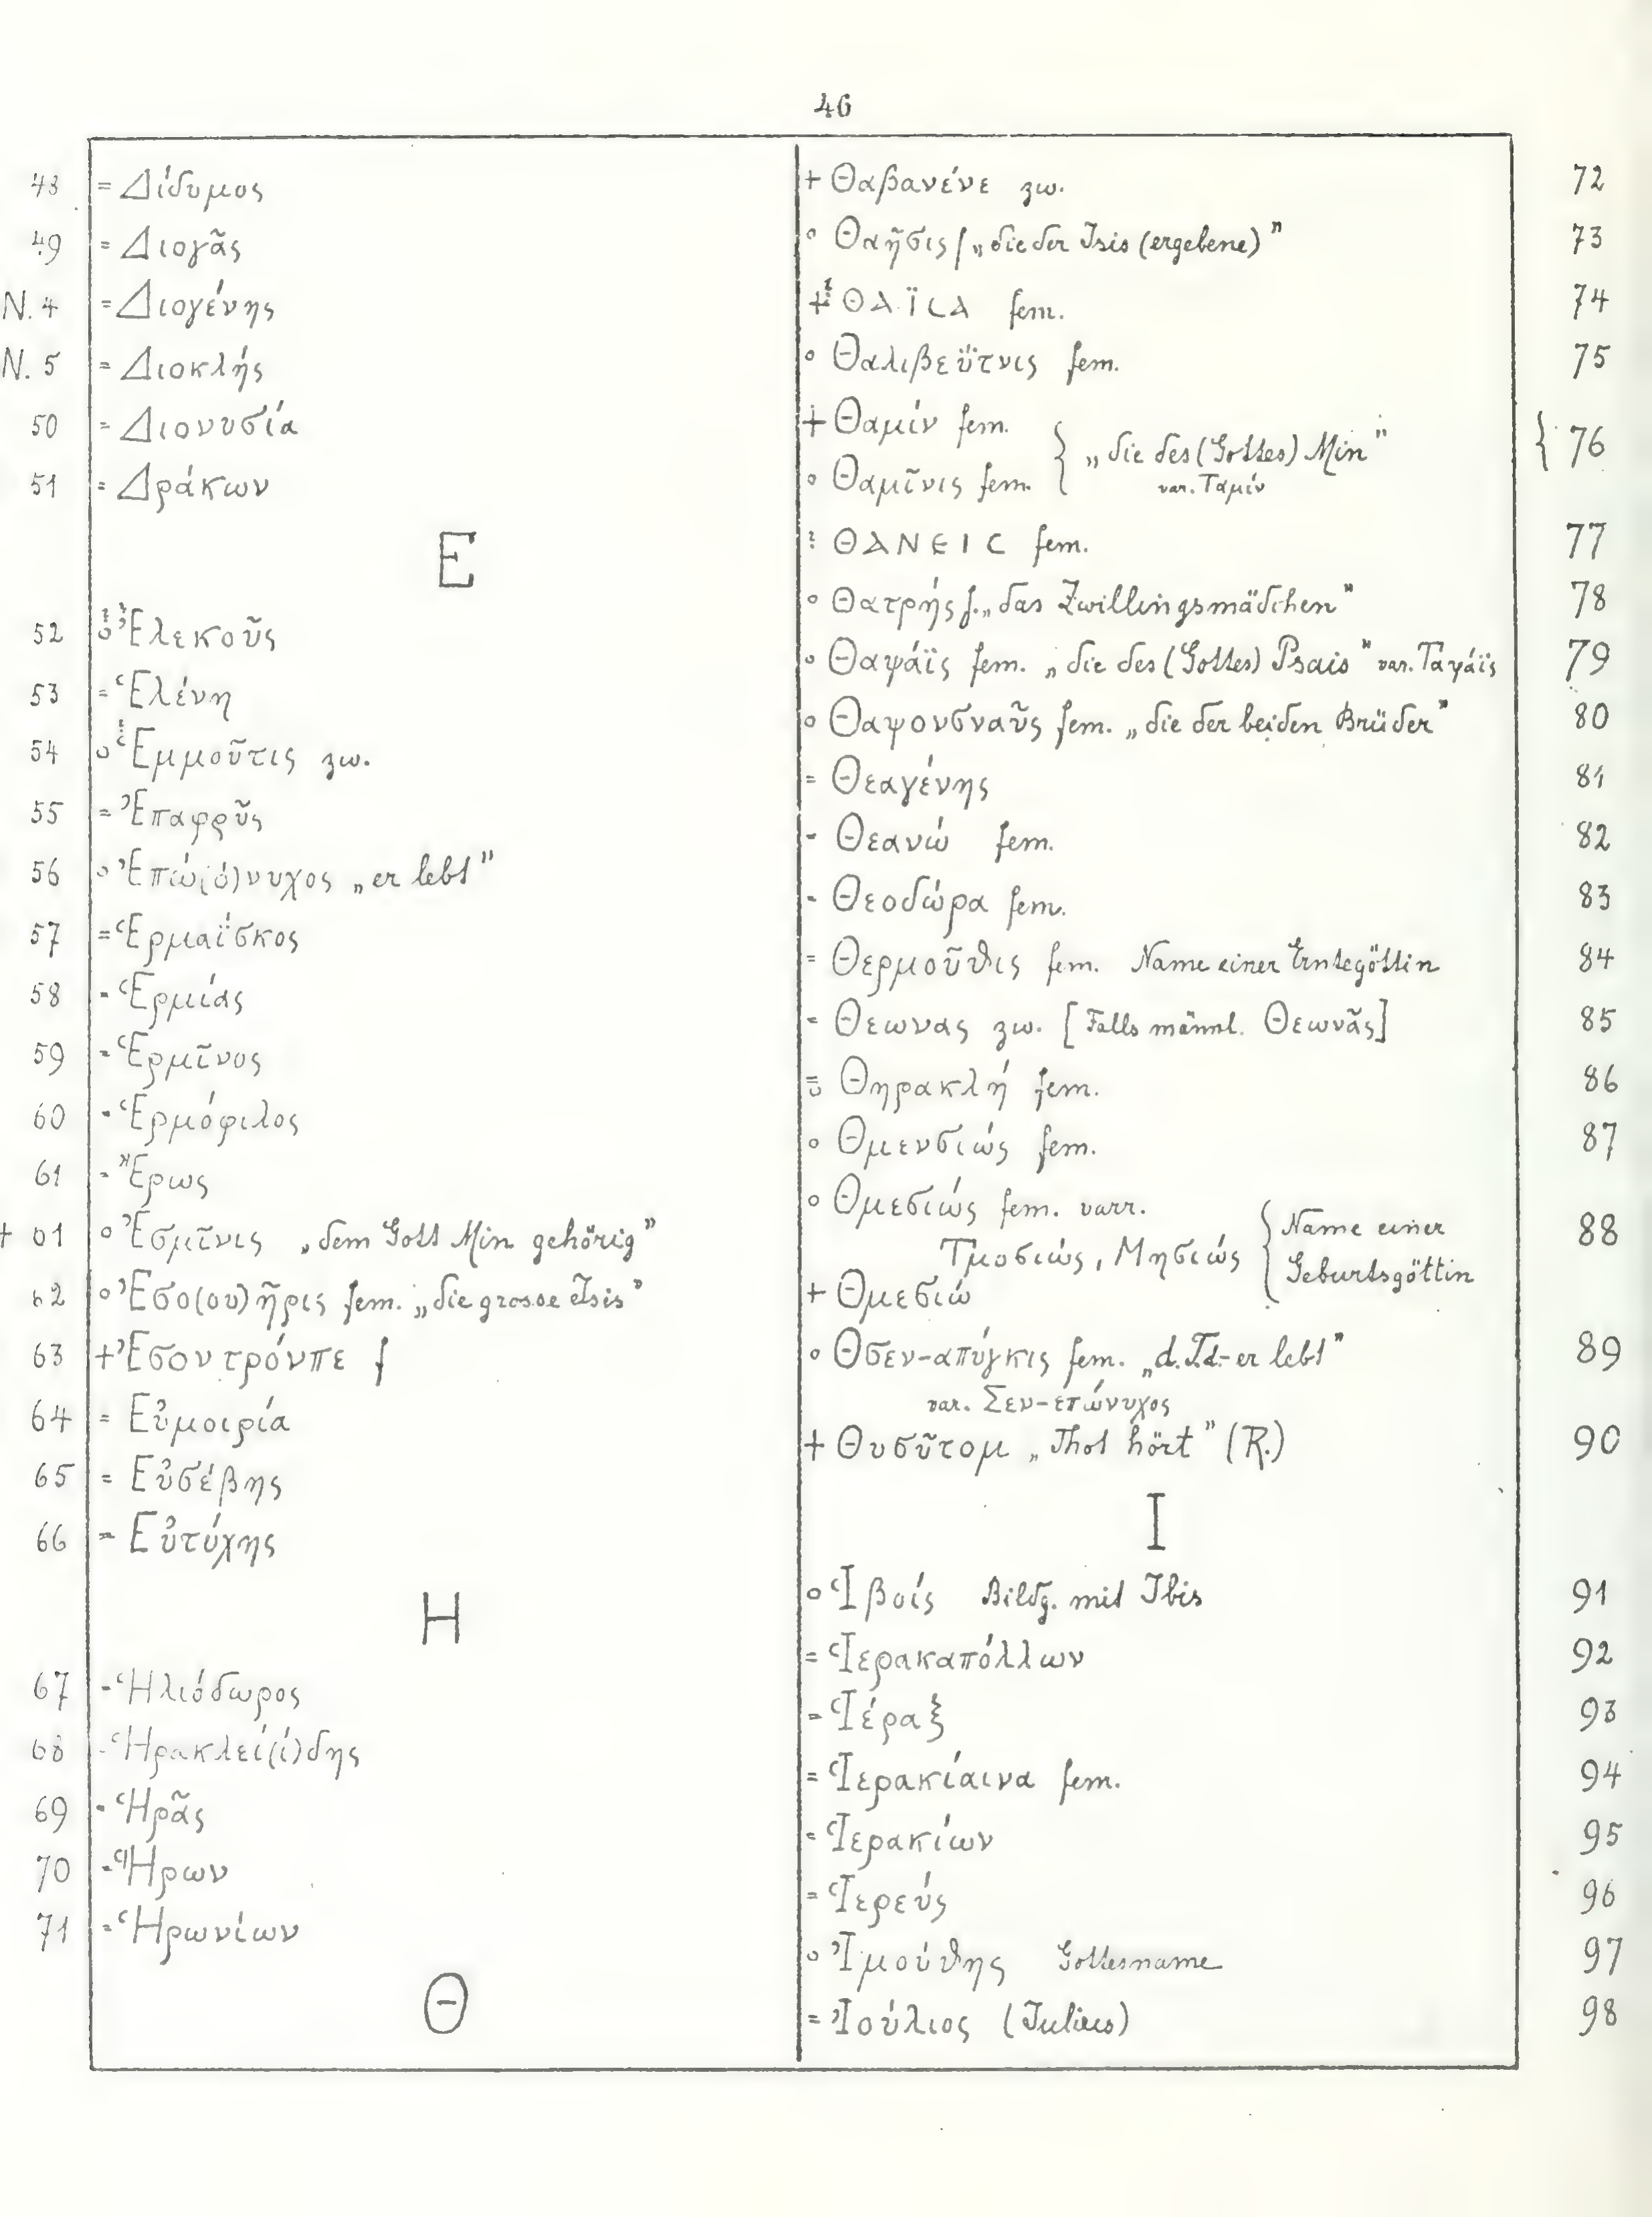 46
48 = Δίδυμος
49 = Διογᾶς
N. 4 = Διογένης
N. 5 = Διοκλής
50 = Διονυσία
51 = Δράκων
E
52 Ἐλεκοῦς
53 = Ἑλένη
54 ο Ἑμμοῦτις зω.
55 = Ἐπαφρῦς
56 ο Ἐπώ(ό)νυχος „er lebt"
57 = Ἑρμαΐσκος
58 = Ἑρμίας
59 = Ἑρμῖνος
60 = Ἑρμόφιλος
61 = Ἔρως
+ 61 ο Ἐσμῖνις „dem Gott Min gehörig"
62 ο Ἐσο(ου)ῆρις fem. „die grosse Isis"
63 + Ἐσοντρόνπε f
64 = Εὐμοιρία
65 = Εὐσέβης
66 = Εὐτύχης
H
67 = Ἡλιόδωρος
68 = Ἡρακλεί(ί)δης
69 = Ἡρᾶς
70 = Ἥρων
71 = Ἡρωνίων
Θ
+ Θαβανένε зω. 72
ο Θαῆσις f „die der Isis (ergebene)" 73
ΘΑΪCΑ fem. 74
ο Θαλιβεΰτνις fem. 75
+ Θαμίν fem. } „die des (Gottes) Min" { 76
ο Θαμῖνις fem. var. Ταμίν
: ΘΑΝΕΙC fem. 77
ο Θατρής f. „das Zwillingsmädchen" 78
ο Θαψάϊς fem. „die des (Gottes) Psais" var. Ταψάϊς 79
ο Θαψονσναῦς fem. „die der beiden Brüder" 80
= Θεαγένης 81
= Θεανώ fem. 82
= Θεοδώρα fem. 83
= Θερμοῦθις fem. Name einer Erntegöttin 84
= Θεωνας зω. [Falls männl. Θεωνᾶς] 85
Θηρακλή fem. 86
ο Θμενσιώς fem. 87
ο Θμεσιώς fem. varr.
Τμοσιώς, Μησιώς { Name einer Geburtsgöttin 88
+ Θμεσιώ
ο Θσεν-απύγκις fem. „d. Td.- er lebt" 89
var. Σεν-επώνυχος
+ Θυσῦτομ „Thot hört" (R.) 90
I
ο Ἱβοίς Bildg. mit Ibis 91
= Ἱερακαπόλλων 92
= Ἱέραξ 93
= Ἱερακίαινα fem. 94
= Ἱερακίων 95
= Ἱερεύς 96
ο Ἰμούθης Gottesname 97
= Ἰούλιος (Julius) 98